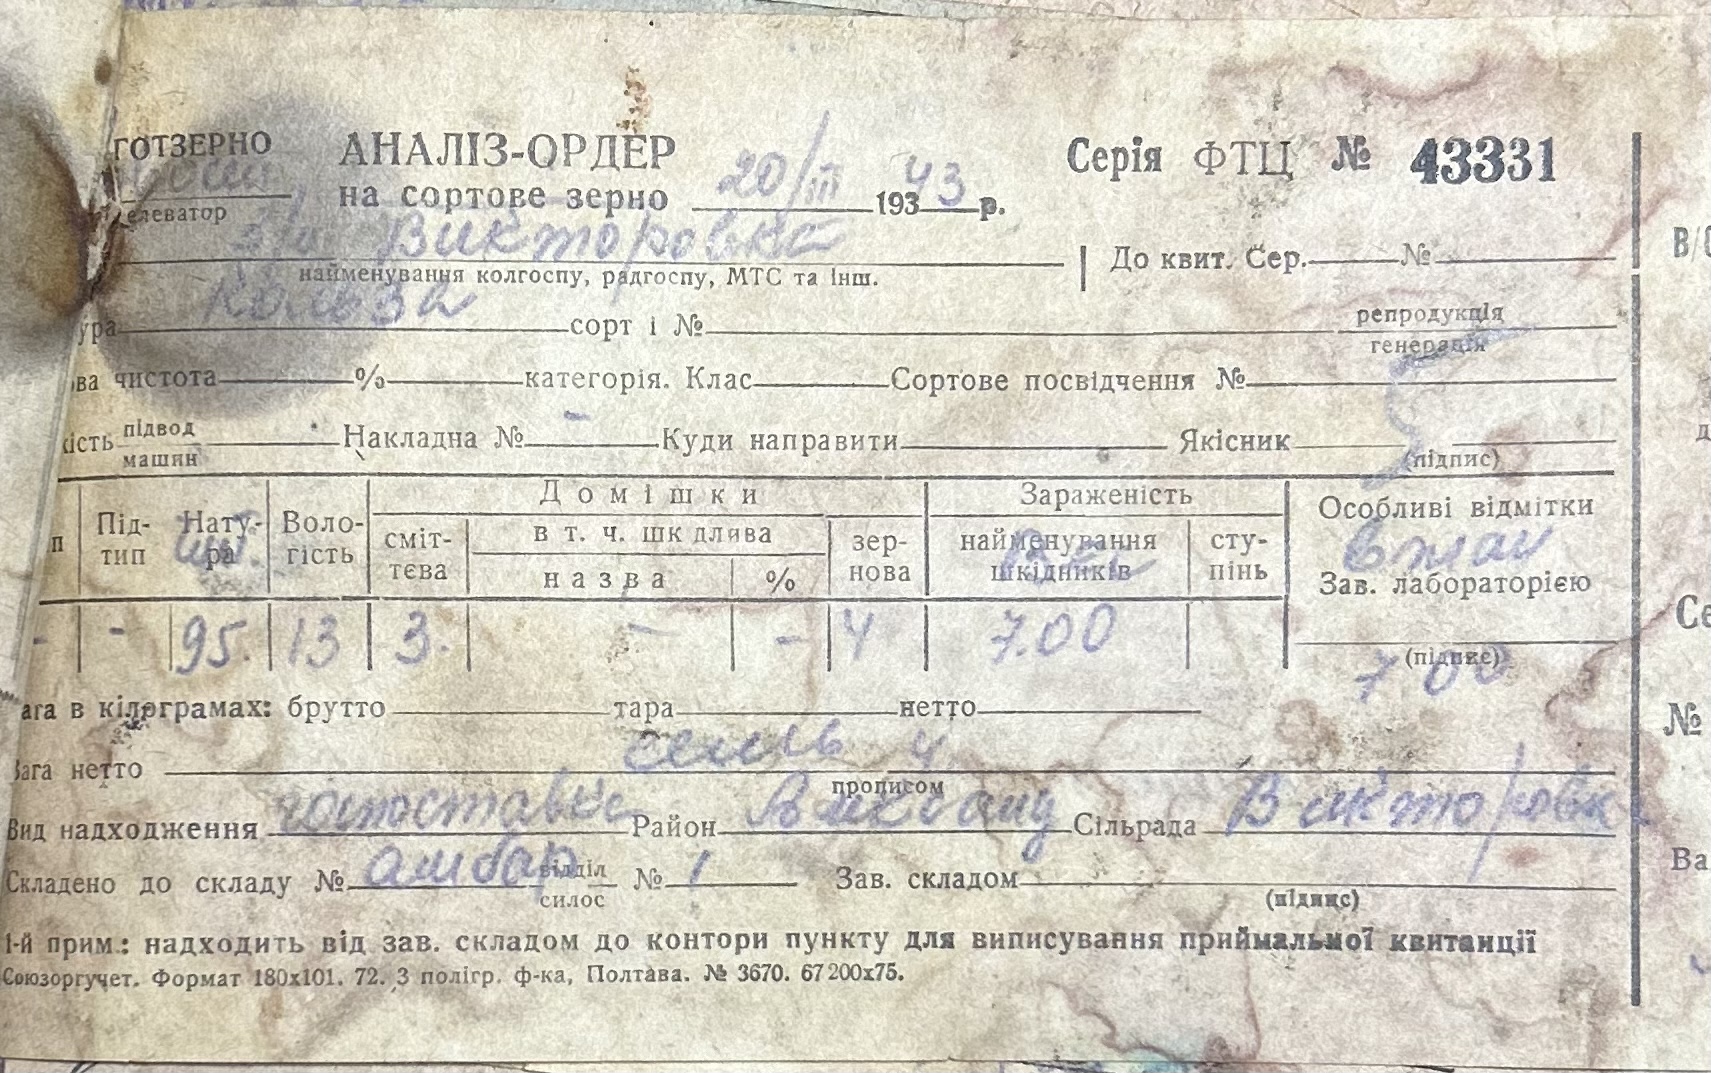 ГОТЗЕРНО АНАЛІЗ-ОРДЕР Серія ФТЦ № 43331
на сортове зерно 20/III 193 43 р.
елеватор
Викторовка
найменування колгоспу, радгоспу, МТС та інш. До квит. Сер. №
ура сорт і № репродукція
генерація
ва чистота % категорія. Клас Сортове посвідчення №
кість підвод Накладна № - Куди направити Якісник
машин (підпис)
Домішки Зараженість
Під- Нату- Воло- Особливі відмітки
п тип ра гість сміт- в т. ч. шк длива зер- найменування сту-
тєва назва % нова шкідників пінь Зав. лабораторією
- - 95. 13 3. - - 4 7.00
(підпис)
7 00
ага в кілограмах: брутто тара нетто
Вага нетто семь ц.
прописом
Вид надходження Район Сільрада Викторовка
Складено до складу № амбар відділ № 1 Зав. складом
силос (підпис)
1-й прим.: надходить від зав. складом до контори пункту для виписування приймальної квитанції
Союзоргучет. Формат 180х101. 72. 3 полігр. ф-ка, Полтава. № 3670. 67200х75.
В/
Се
№
Ва